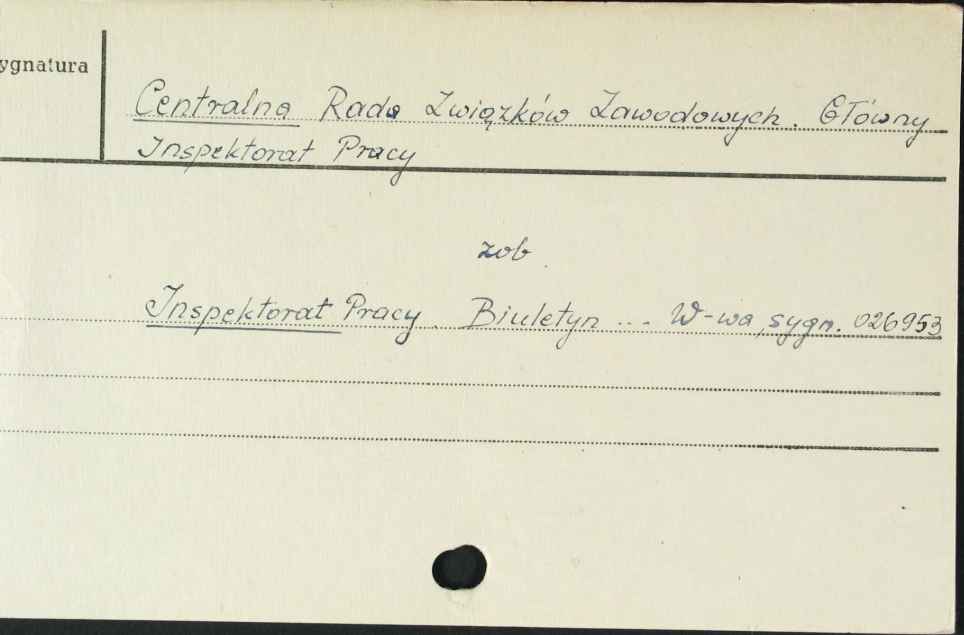 ygnatura
Centralna Rada Związków Zawodowych. Główny
Inspektorat Pracy
zob
Inspektorat Pracy. Biuletyn ... W-wa, sygn. 026953